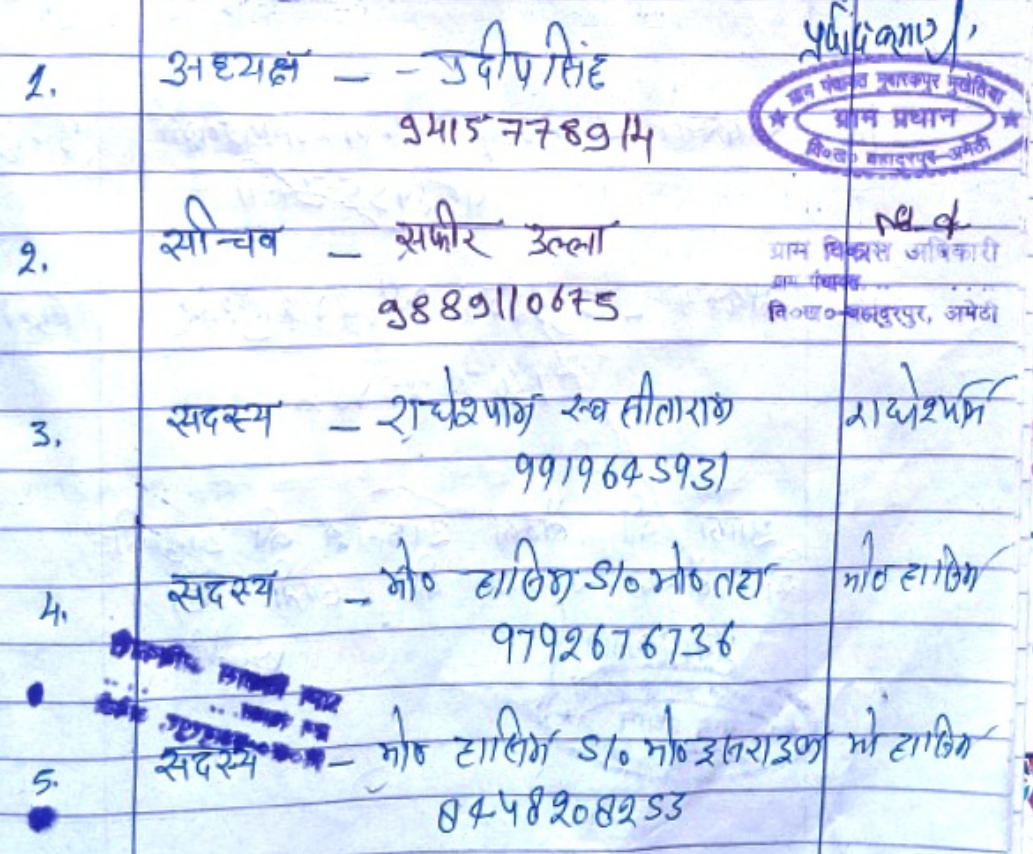 1. अध्यक्ष - - प्रदीप सिंह
9415778914
ग्राम पंचायत मुबारकपुर मुखेतिया
ग्राम प्रधान
वि०ख० बहादुरपुर-अमेठी
2. सचिव - सफीर उल्ला
9889110675
ग्राम विकास अधिकारी
ग्राम पंचायत.. ....
वि०ख०-बहादुरपुर, अमेठी
3. सदस्य - राधेश्याम स्व सीताराम राधेश्याम
9919645931
4. सदस्य - मो० हासिम S/o मो० तहा मो० हासिम
9792676736
5. सदस्य - मो० हासिम S/o मो० इसराइल मो हासिम
8448208253